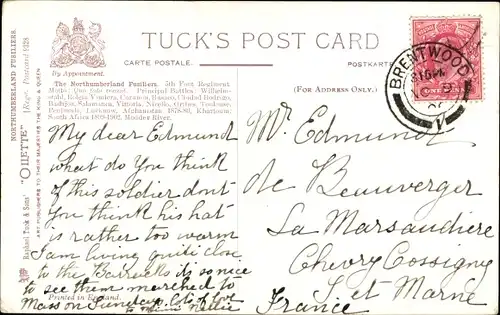 TUCK'S POST CARD
CARTE POSTALE.
POSTKARTE
By Appointment.
(For Address Only.)
The Northumberland Fusiliers. 5th Foot Regiment
Motto Quo fata vocant. Principal Battles. Wilhelms-
wahl, Roleia, Vimiera, Corunna, Busaco, Ciudad Rodrigo,
Badajoz, Salamanca, Vittoria, Nivelle, Orthes, Toulouse,
Lucknow, Afghanistan, 1878-80, Khartoum,
South Africa 1899-1902. Modder River.
NORTHUMBERLAND FUSILIERS.
"OILETTE" (Regd.) Postcard
Raphael Tuck & Sons'
ART PUBLISHERS TO THEIR MAJESTIES THE KING & QUEEN
BRENTWOOD
ONE PENNY
My dear Edmund
what do You think
of this soldier dont
You think his hat
is rather too warm
I am living quite close
to the Barracks its so nice
to see them marched to
Mass on Sundays. lots of love
Nellie
Printed in England.
Mr. Edmund
de Beauverger
La Marsaudiere
Chevry Cossigny
S. et Marne
France